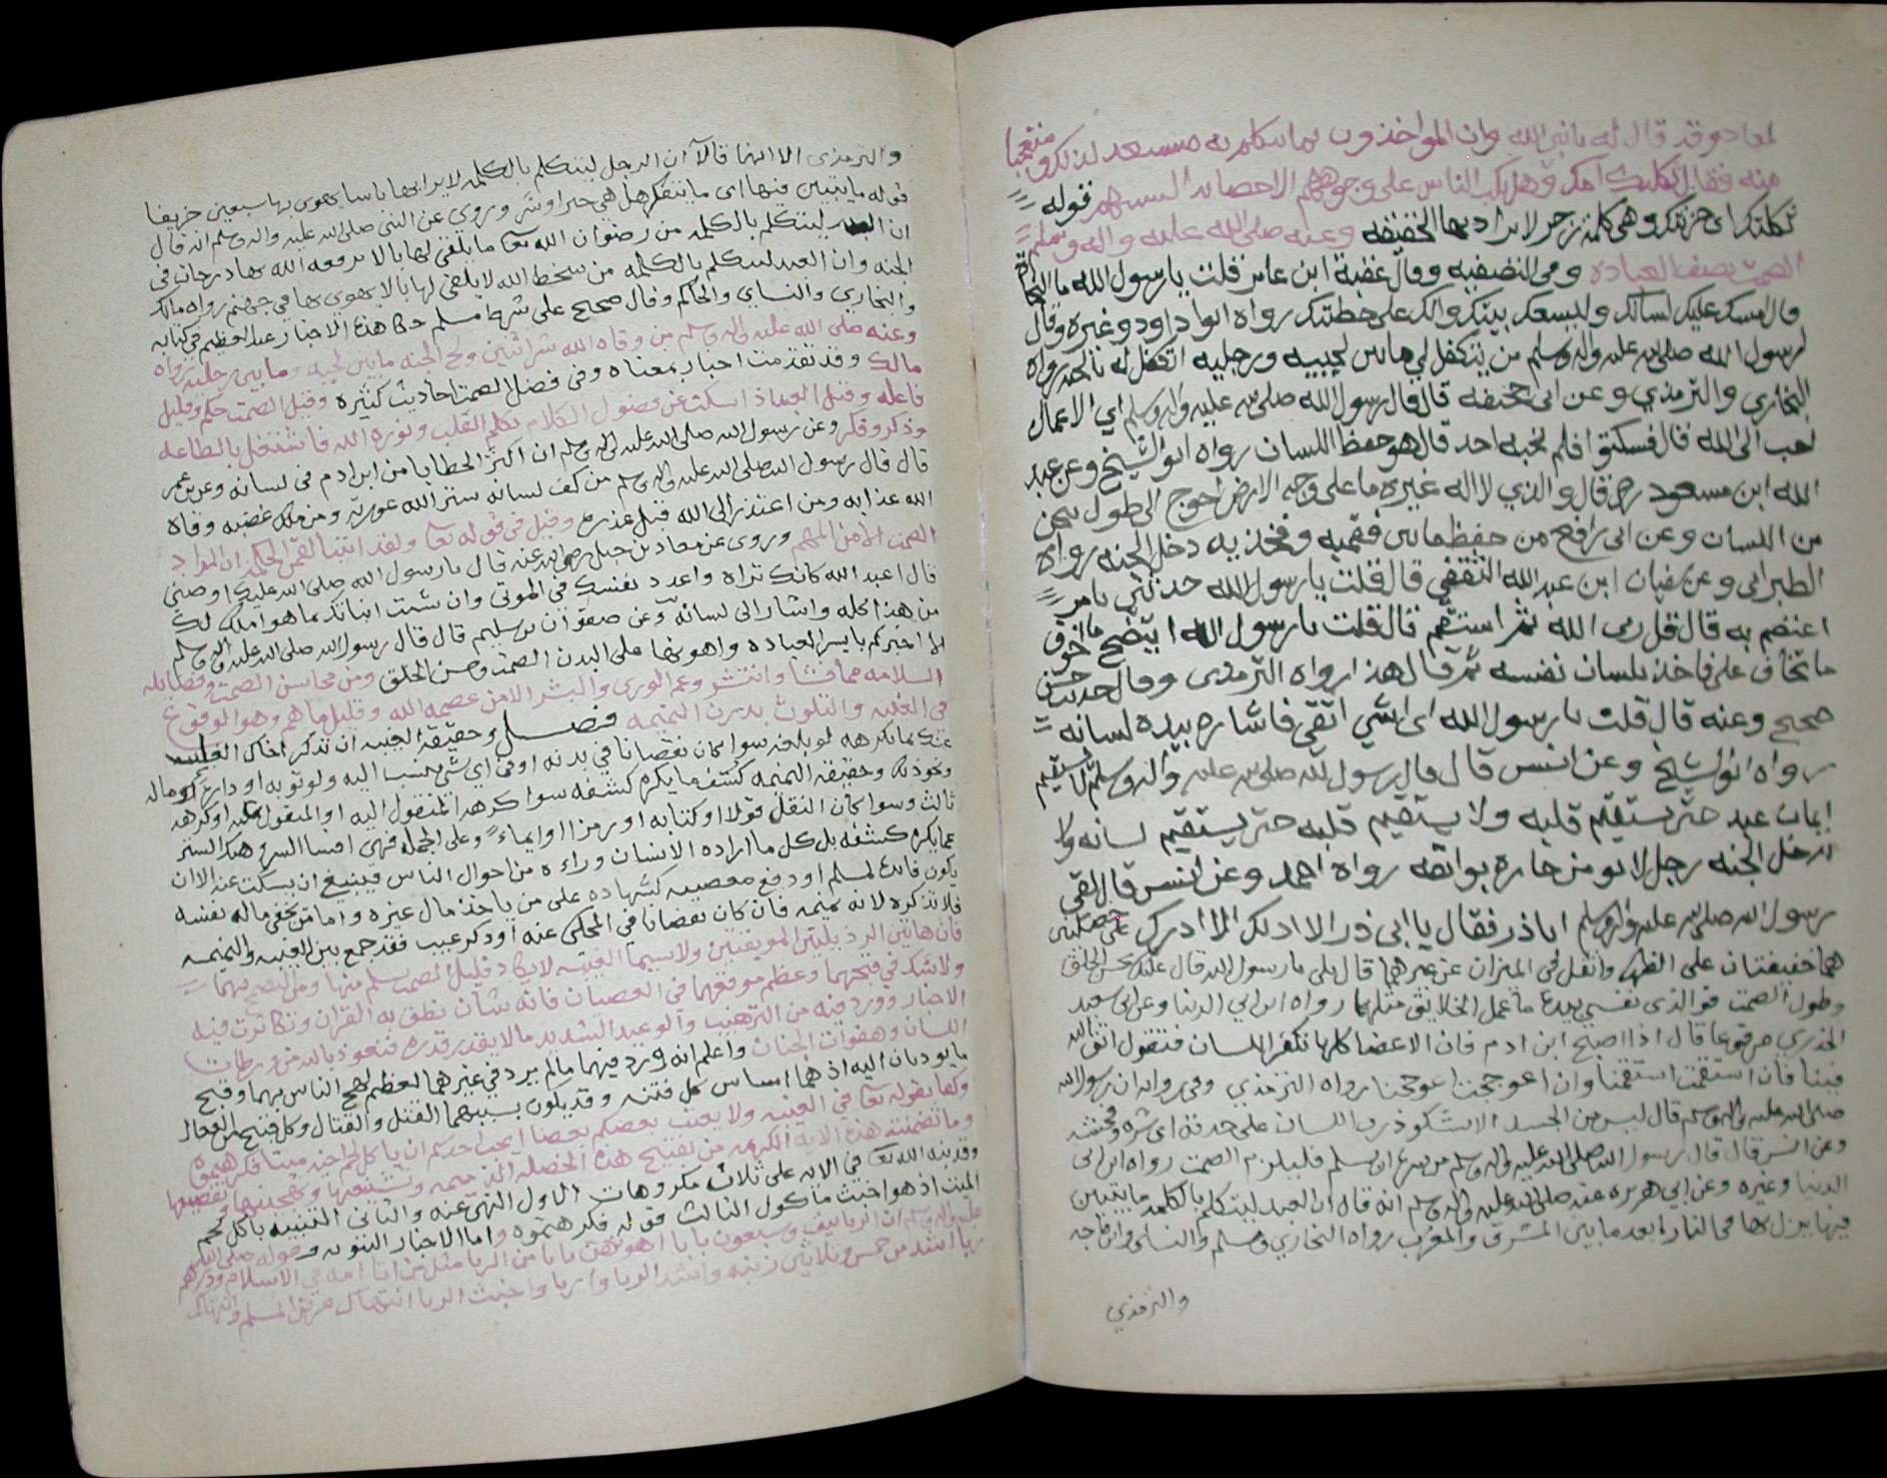 لمعاد وقد قال له يا نبي الله وان المواخذون بما نتكلم به مستبعد لذلك ومتعجبا
منه فقال ثكلتك امك وهل يكب الناس على وجوههم الا حصايد السنتهم قوله
ثكلتك اي حزنتك وهي كلمة زجر لا يراد بها الحقيقه وعنه صلى الله عليه واله وسلم
الصمت نصف العباده وفي التصفيه وقال عقبة ابن عامر قلت يا رسول الله ما النجاة
قال امسك عليك لسانك وليسعك بيتك وابك على خطئتك رواه ابوا داود وغيره وقال
رسول الله صلى الله عليه واله وسلم من يتكفل لي ما بين لحييه ورجليه اتكفل له بالجنه رواه
البخاري والترمذي وعن ابي جحيفه قال قال رسول الله صلى الله عليه واله وسلم اي الاعمال
احب الى الله قال فسكتوا فلم يجبه احد قال هو حفظ اللسان رواه ابو الشيخ وعن عبد
الله ابن مسعود قال والذي لا اله غيره ما على وجه الارض احوج الى طول سجن
من اللسان وعن ابي رافع من حفظ ما بين فقميه وفخذيه دخل الجنه رواه
الطبراني وعن سفيان ابن عبد الله الثقفي قال قلت يا رسول الله حدثني بامر
اعتصم به قال قل ربي الله ثم استقم قال قلت يا رسول الله ما اخوف
ما تخاف علي فاخذ بلسان نفسه ثم قال هذا رواه الترمذي وقال حديث حسن
صحيح وعنه قال قلت يا رسول الله اي شي اتقي فاشار بيده لسانه
رواه ابو الشيخ وعن انس قال قال رسول الله صلى الله عليه واله وسلم لا يستقيم
ايمان عبد حتى يستقيم قلبه ولا يستقيم قلبه حتى يستقيم لسانه ولا
يدخل الجنه رجل لا يومن جاره بوائقه رواه احمد وعن انس قال لقي
رسول الله صلى الله عليه واله وسلم اباذر فقال يا ابى ذر الا ادلك على خصلتين
هما خفيفتان على الظهر واثقل في الميزان عن غيرهما قال بلى يا رسول الله قال عليك بحسن الخلق
وطول الصمت فوالذي نفسي بيده ما عمل الخلايق مثلهما رواه ابن ابي الدنيا وعن ابي سعيد
الخدري مرفوعا قال اذا اصبح ابن ادم فان الاعضا كلها تكفر اللسان فتقول اتق الله
فينا فان استقمت استقمنا وان اعوججت اعوججنا رواه الترمذي وفي رواية ان رسول الله
صلى الله عليه واله وسلم قال ليس من الجسد الا يشكو ذرب اللسان على حدته اي شره وفحشه
وعن انس قال قال رسول الله صلى الله عليه واله وسلم من سره ان يسلم فليلزم الصمت رواه ابن ابي
الدنيا وغيره وعن ابي هريره عنه صلى الله عليه واله وسلم انه قال ان العبد ليتكلم بالكلمه ما يتبين
فيها يزل بها في النار ابعد ما بين المشرق والمغرب رواه البخاري ومسلم والنساي وابن ماجه
والترمذي
والترمذي الا انهما قالا ان الرجل ليتكلم بالكلمه لا يرا بها باسا يهوي بها سبعين خريفا
قوله ما يتبين فيها اي ما يتفكر هل هي خير او شر وروي عن النبي صلى الله عليه واله وسلم انه قال
ان العبد ليتكلم بالكلمه من رضوان الله تعا ما يلقي لها بالا يرفعه الله بها درجات في
الجنه وان العبد ليتكلم بالكلمه من سخط الله لا يلقي لها بالا يهوي بها في جهنم رواه مالك
والبخاري والنساي والحاكم وقال صحيح على شرط مسلم حكا هذه الاخبار عبد العظيم في كتابه
وعنه صلى الله عليه واله وسلم من وقاه الله شر اثنين ولج الجنه ما بين لحييه وما بين رجليه رواه
مالك وقد تقدمت اخبار بمعناه وفي فضل الصمت احاديث كثيره وقيل الصمت حكم وقليل
فاعله وقيل العباد اسكت عن فضول الكلام تكلم القلب ونوره الله فاشتغل بالطاعه
وذكر وفكر وعن رسول الله صلى الله عليه واله وسلم ان اكثر الخطايا من ابن ادم في لسانه وعن بن عمر
قال قال رسول الله صلى الله عليه واله وسلم من كف لسانه ستر الله عورته ومن ملك غضبه وقاه
الله عذابه ومن اعتذر الى الله قبل عذره وقيل في قوله تعا ولقد اتينا لقمن الحكمه ان المراد
الصمت الا من المهم وروي عن معاذ بن جبل رضي الله عنه قال يا رسول الله صلى الله عليك اوصني
قال اعبد الله كانك تراه واعدد نفسك في الموتى وان شئت انباتك بما هو املك لك
من هذا كله واشار الى لسانه وعن صفوان بن سليم قال قال رسول الله صلى الله عليه واله وسلم
الا اخبركم بايسر العباده واهونها على البدن الصمت وحسن الخلق ومن محاسن الصمت وفضائله
السلامه مما فشا وانتشر وعم الورى والبشر الا من عصمه الله وقليل ما هم وهو الوقوع
في الغيبه والتلوث بدرن النميمه فصل وحقيقة الغيبه ان تذكر اخاك الغائب
عنك بما يكرهه لو بلغه سوا كان نقصانا في بدنه او في اي شي ينسب اليه ولو ثوبه او داره او ماله
ونحو ذلك وحقيقة النميمه كشف ما يكره كشفه سوا كرهه المنقول اليه او المنقول عنه او كرهه
ثالث وسوا كان النقل قولا او كتابه او رمزا او ايماء وعلى الجمله فهي افشا السر وهتك الستر
عما يكره كشفه بل كل ما اراده الانسان وراءه من احوال الناس فينبغي ان يسكت عنه الا ان
يكون فائدة لمسلم او دفع معصيه كشهاده على من ياخذ مال غيره واما من يخفي ماله بنفسه
فلا تذكره لانه نميمه فان كان نقصانا في المحكي عنه او ذكر عيب فقد جمع بين الغيبه والنميمه
فان هاتين الرذيلتين الموبقتين ولا سيما الغيبه لا يكاد قليل الصمت يسلم منها
ولا شك في قبحهما وعظم موقعهما في العصيان فانه شان نطق به القران وتكاثرت فيه
الاخبار وورد فيه من الترهيب والوعيد الشديد ما لا يقدر قدره فنعوذ بالله من ورطات
اللسان وهفوات الجنان واعلم انه ورد فيهما مالم يرد في غيرهما لعظم لهج الناس بهما وقبح
ما يوديان اليه اذ هما اساس كل فتنه وقد يكون بسببهما القتل والقتال وكل قبيح من الفعال
وكفا بقوله تعا في الغيبه ولا يغتب بعضكم بعضا ايحب احدكم ان ياكل لحم اخيه ميتا فكرهتموه
وما تضمنته هذه الايه الكريمه من تقبيح هذه الخصله الذميمه وتشنيعها وتهجينها وتفضيعها
وقد نبه الله تعا في الايه على ثلاث مكروهات الاول النهي عنه والثاني التشبيه باكل لحم
الميت اذ هو اخبث ماكول الثالث قوله فكرهتموه واما الاخبار النبويه فقوله صلى الله
عليه واله وسلم ان الربا نيف وسبعون بابا اهونهن بابا من الربا مثل من اتا امه في الاسلام ودرهم
ربا اشد من خمس وثلاثين زنيه واشد الربا واربا واخبث الربا انتهاك عرض المسلم وانتهاك